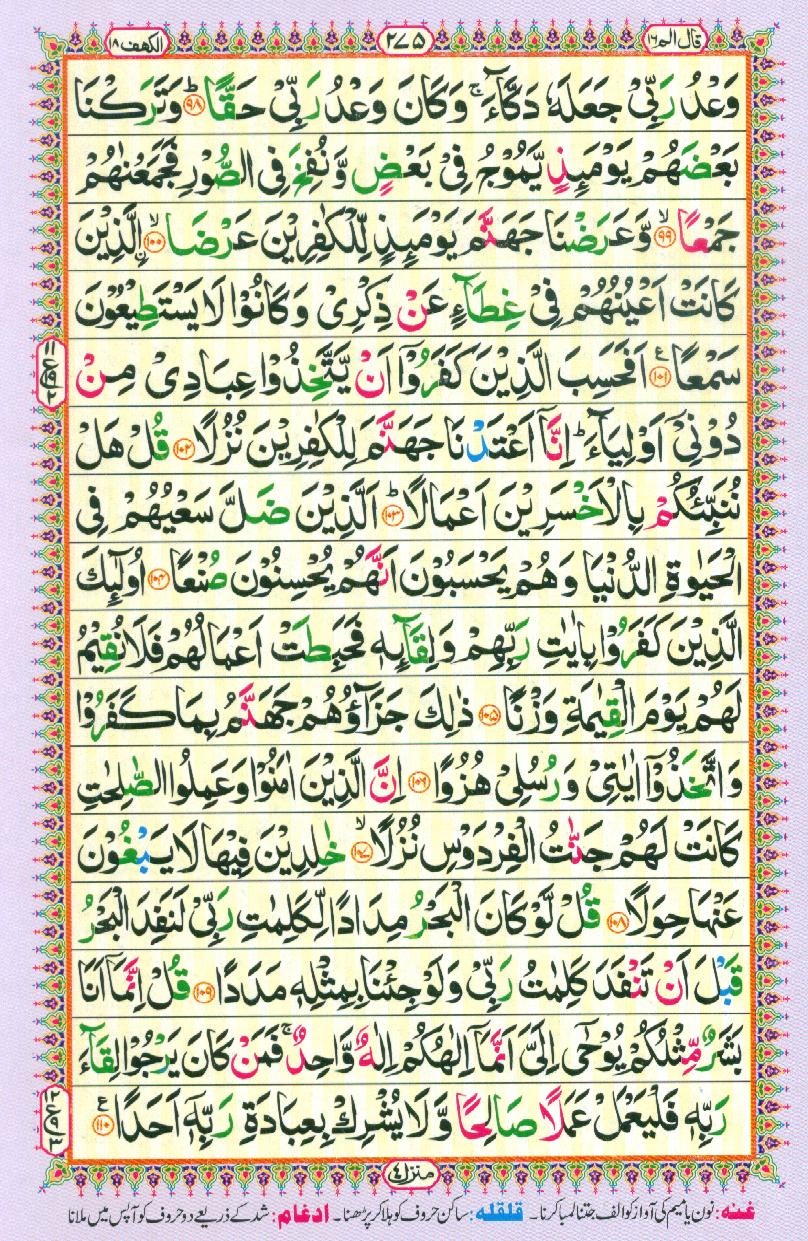 قال الم ۱۶
۲۷۵
الكهف ۱۸
وَعْدُ رَبِّیْ جَعَلَهٗ دَكَّآءَ ۚ وَكَانَ وَعْدُ رَبِّیْ حَقًّا ؕ ﴿۹۸﴾ وَتَرَكْنَا
بَعْضَهُمْ یَوْمَىِٕذٍ یَّمُوْجُ فِیْ بَعْضٍ وَّ نُفِخَ فِی الصُّوْرِ فَجَمَعْنٰهُمْ
جَمْعًا ۙ ﴿۹۹﴾ وَّ عَرَضْنَا جَهَنَّمَ یَوْمَىِٕذٍ لِّلْكٰفِرِیْنَ عَرْضَا ۙ ﴿۱۰۰﴾ ِ۟الَّذِیْنَ
كَانَتْ اَعْیُنُهُمْ فِیْ غِطَآءٍ عَنْ ذِكْرِیْ وَ كَانُوْا لَا یَسْتَطِیْعُوْنَ
سَمْعًا ﴿۱۰۱﴾ ع اَفَحَسِبَ الَّذِیْنَ كَفَرُوْۤا اَنْ یَّتَّخِذُوْا عِبَادِیْ مِنْ
دُوْنِیْۤ اَوْلِیَآءَ ؕ اِنَّاۤ اَعْتَدْنَا جَهَنَّمَ لِلْكٰفِرِیْنَ نُزُلًا ﴿۱۰۲﴾ قُلْ هَلْ
نُنَبِّئُكُمْ بِالْاَخْسَرِیْنَ اَعْمَالًا ؕ ﴿۱۰۳﴾ اَلَّذِیْنَ ضَلَّ سَعْیُهُمْ فِی
الْحَیٰوةِ الدُّنْیَا وَ هُمْ یَحْسَبُوْنَ اَنَّهُمْ یُحْسِنُوْنَ صُنْعًا ﴿۱۰۴﴾ اُولٰٓىِٕكَ
الَّذِیْنَ كَفَرُوْا بِاٰیٰتِ رَبِّهِمْ وَ لِقَآىِٕهٖ فَحَبِطَتْ اَعْمَالُهُمْ فَلَا نُقِیْمُ
لَهُمْ یَوْمَ الْقِیٰمَةِ وَزْنًا ﴿۱۰۵﴾ ذٰلِكَ جَزَآؤُهُمْ جَهَنَّمُ بِمَا كَفَرُوْا
وَ اتَّخَذُوْۤا اٰیٰتِیْ وَ رُسُلِیْ هُزُوًا ﴿۱۰۶﴾ اِنَّ الَّذِیْنَ اٰمَنُوْا وَ عَمِلُوا الصّٰلِحٰتِ
كَانَتْ لَهُمْ جَنّٰتُ الْفِرْدَوْسِ نُزُلًا ۙ ﴿۱۰۷﴾ خٰلِدِیْنَ فِیْهَا لَا یَبْغُوْنَ
عَنْهَا حِوَلًا ﴿۱۰۸﴾ قُلْ لَّوْ كَانَ الْبَحْرُ مِدَادًا لِّكَلِمٰتِ رَبِّیْ لَنَفِدَ الْبَحْرُ
قَبْلَ اَنْ تَنْفَدَ كَلِمٰتُ رَبِّیْ وَ لَوْ جِئْنَا بِمِثْلِهٖ مَدَدًا ﴿۱۰۹﴾ قُلْ اِنَّمَاۤ اَنَا
بَشَرٌ مِّثْلُكُمْ یُوْحٰۤی اِلَیَّ اَنَّمَاۤ اِلٰهُكُمْ اِلٰهٌ وَّاحِدٌ ۚ فَمَنْ كَانَ یَرْجُوْا لِقَآءَ
رَبِّهٖ فَلْیَعْمَلْ عَمَلًا صَالِحًا وَّ لَا یُشْرِكْ بِعِبَادَةِ رَبِّهٖۤ اَحَدًا ﴿۱۱۰﴾ ع
منزل ۴
غنه: نون یا میم کی آواز کو الف جتنا لمبا کرنا۔ قلقله: ساکن حروف کو ہلا کر پڑھنا۔ ادغام: شد کے ذریعے دو حروف کو آپس میں ملانا